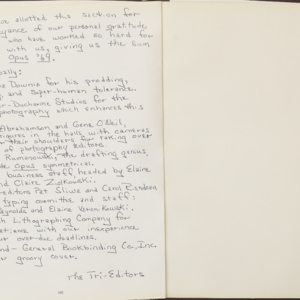 ve allotted this section for
yance of our personal gratitude
who have worked so hard for
with us, giving us the sum
Opus '69.
ally:
Downe for his prodding,
and super-human tolerance.
r-Ducharme Studios for the
photography which enhances this
Abrahamson and Gene O'Neil,
figures in the halls, with cameras
their shoulders for taking over
of photography editors.
Romanowski, the drafting genius,
de Opus symmetrical.
business staff, headed by Elaine
nd Claire Zulkowski.
editors Pat Sliwa and Carol
typing committee and staff:
eynolds and Elaine Kowski.
h Lithographing Company for
atience with our inexperience
ur over-due deadlines.
and - General Bookbinding Co., Inc.
ur groovy cover.
The Tri-Editors